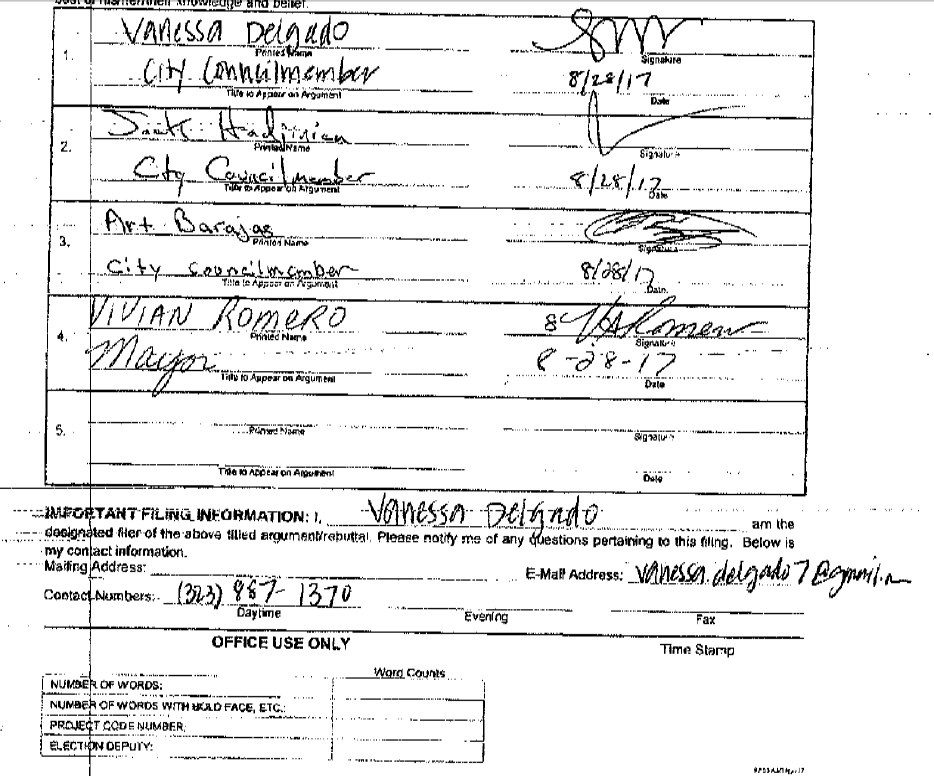 best of his/her/their knowledge and belief.
1.
Vanessa Delgado
Printed Name
Signature
City Councilmember
8/28/17
Title to Appear on Argument
Date
2.
Jack Hadjinian
Printed Name
Signature
City Councilmember
8/28/17
Title to Appear on Argument
Date
3.
Art Barajas
Printed Name
Signature
City Councilmember
8/28/17
Title to Appear on Argument
Date
4.
VIVIAN ROMERO
Printed Name
Signature
Mayor
8-28-17
Title to Appear on Argument
Date
5.
Printed Name
Signature
Title to Appear on Argument
Date
IMPORTANT FILING INFORMATION: I, Vanessa Delgado am the
designated filer of the above titled argument/rebuttal. Please notify me of any questions pertaining to this filing. Below is
my contact information.
Mailing Address:
E-Mail Address: vanessa.delgado7@gmail.
Contact Numbers: (323) 887-1370
Daytime
Evening
Fax
OFFICE USE ONLY
Time Stamp
Word Counts
NUMBER OF WORDS:
NUMBER OF WORDS WITH BOLD FACE, ETC.:
PROJECT CODE NUMBER:
ELECTION DEPUTY: